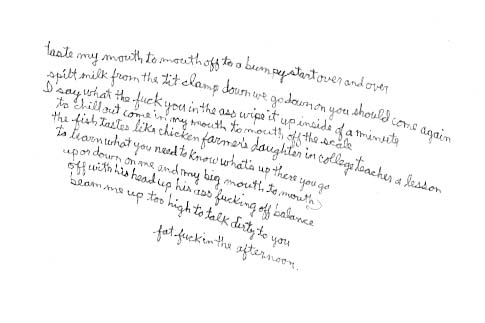 taste my mouth to mouth off to a bumpy start over and over
spilt milk from the tit clamp down we go down on you should come again
I say what the fuck you in the ass wipe it up inside of a minute
to chill out come in my mouth to mouth off the scale
the fish tastes like chicken farmer's daughter in college teacher a lesson
to learn what you need to know what's up there you go
up or down on me and my big mouth to mouth
off with his head up his ass fucking off balance
beam me up too high to talk dirty to you
fat fuck in the afternoon.